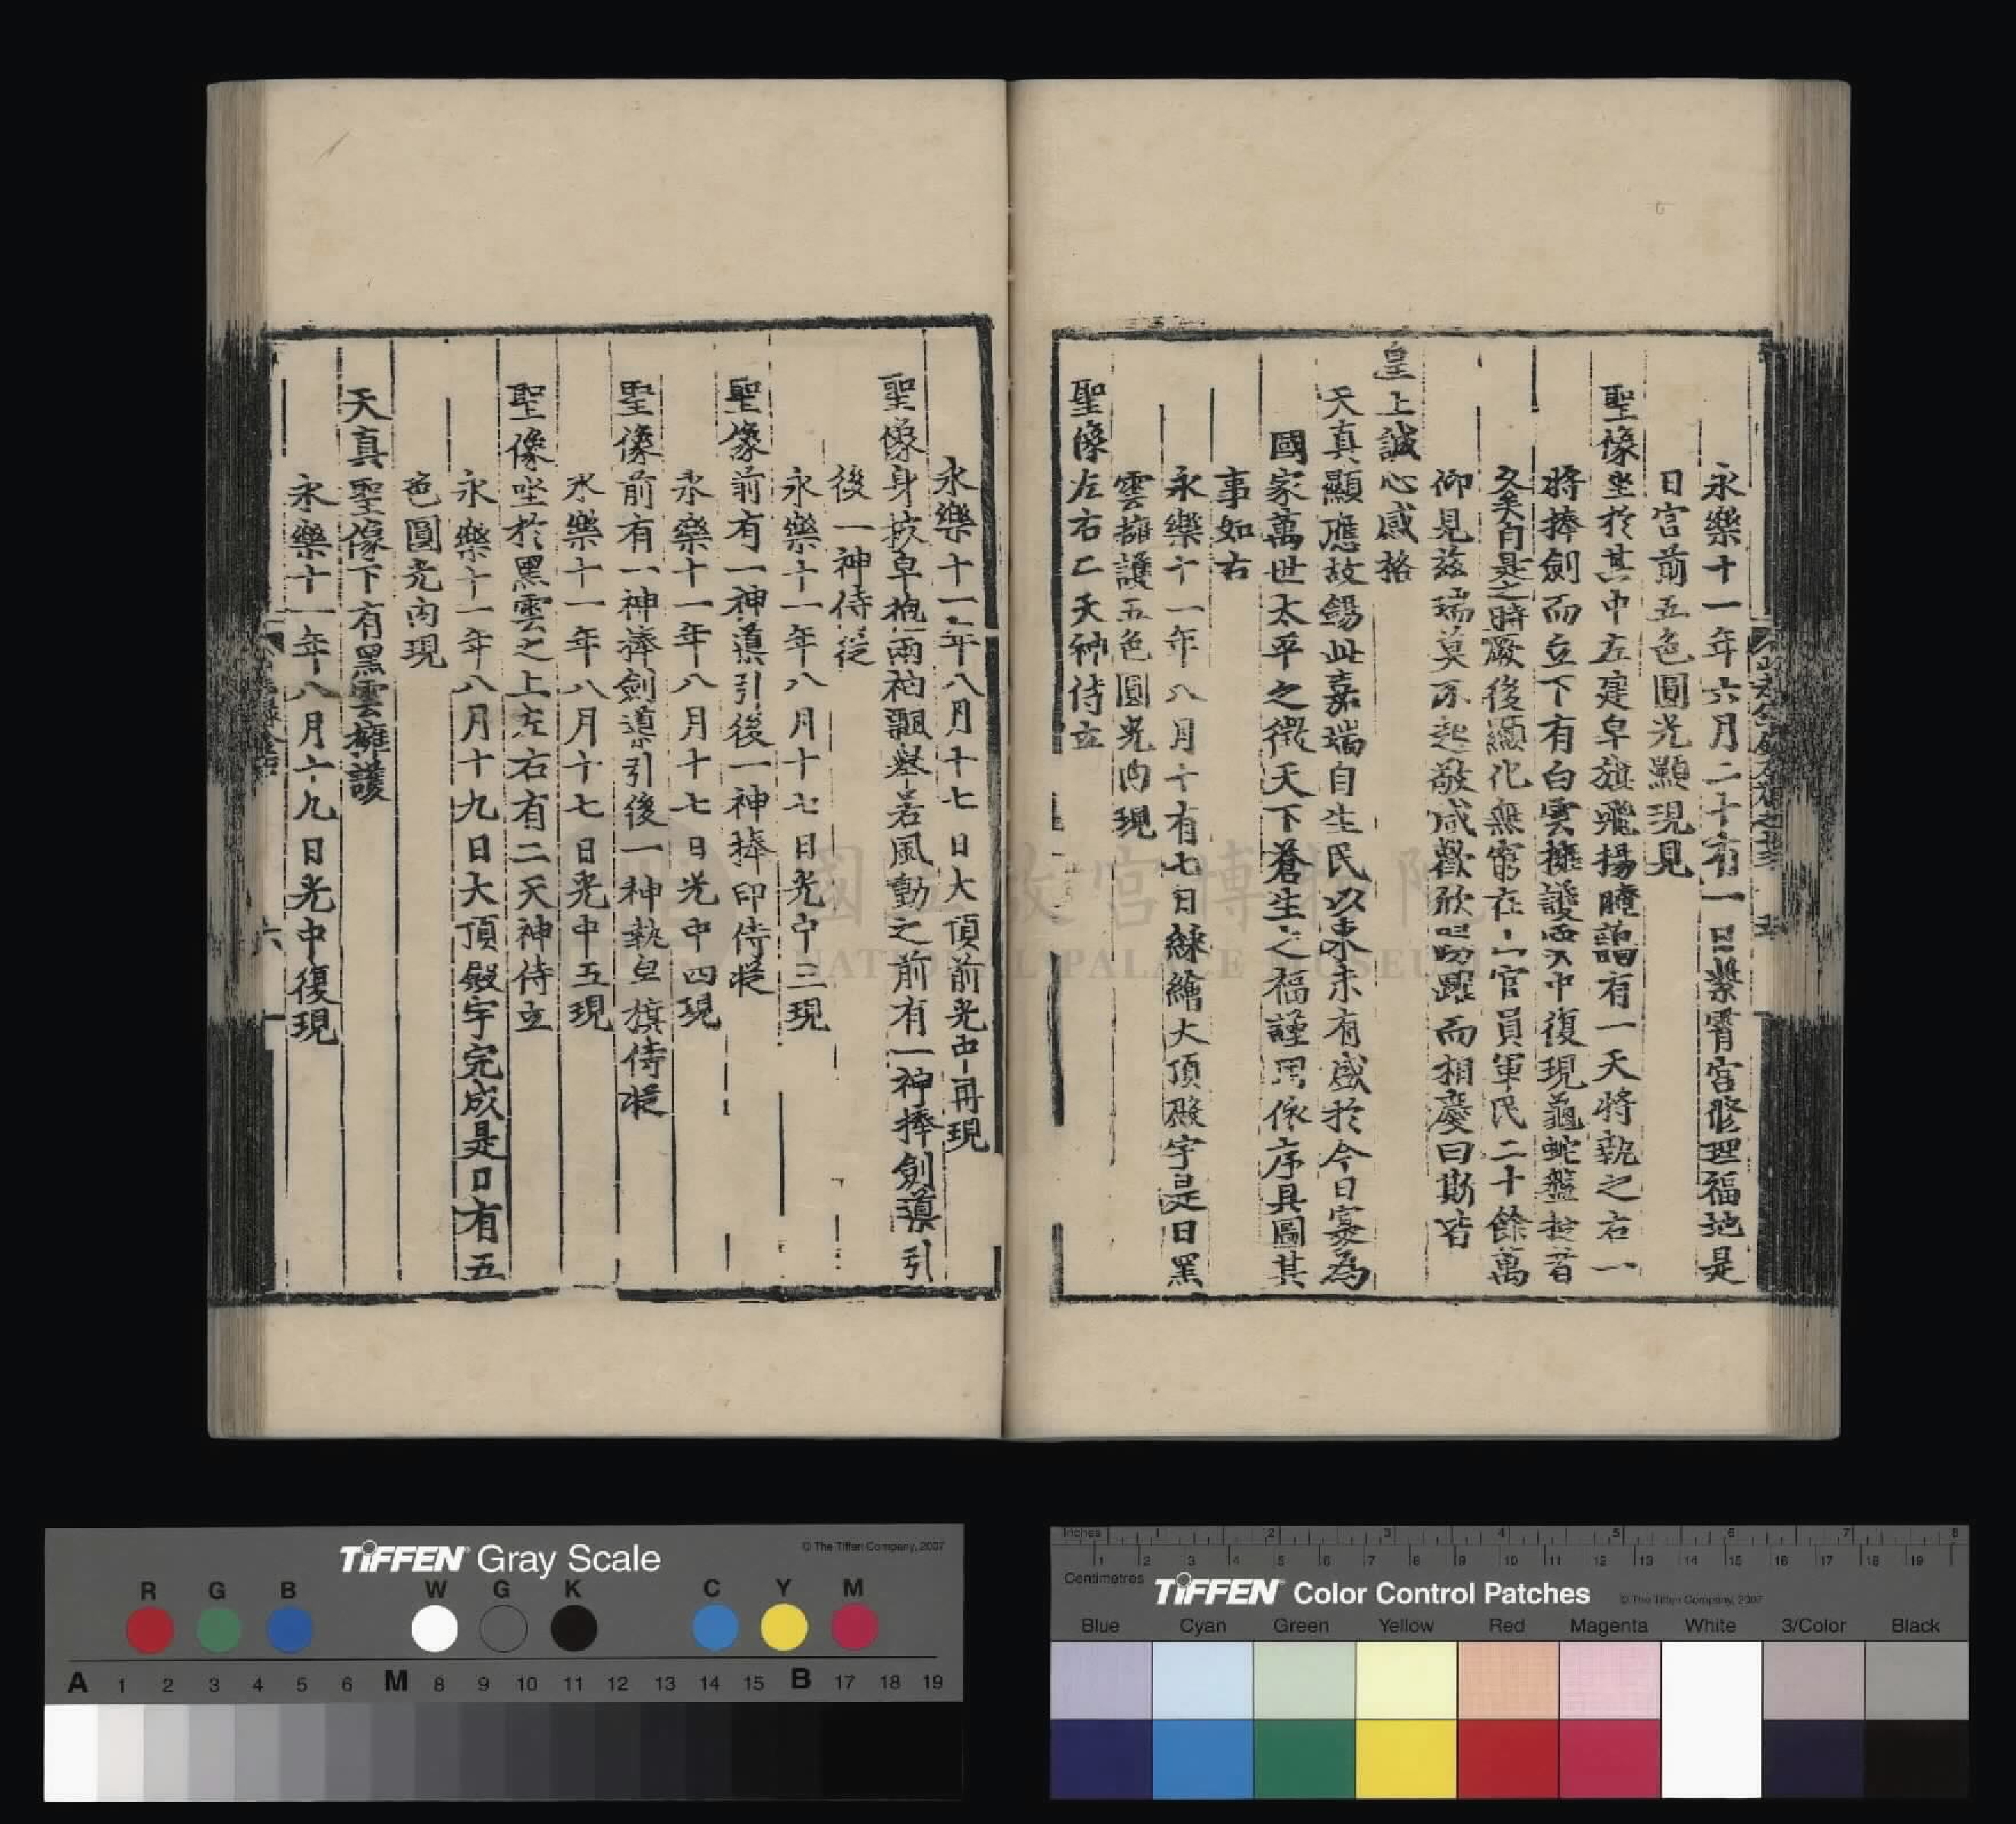 永樂十一年六月二十有一日紫霄宮修理福地是
日宮前五色圓光顯現見
聖像坐於其中左建皁旗飛揚晻藹有一天將執之右一
將捧劍而立下有白雲擁護雲中復現龜蛇盤旋者
久矣自是之時厥後顯化無窮在山官員軍民二十餘萬
仰見茲瑞莫不起敬咸歡欣踴躍而相慶曰斯皆
皇上誠心感格
天真顯應故錫此嘉瑞自生民以來未有盛於今日寔為
國家萬世太平之徵天下蒼生之福謹用像序具圖其
事如右
永樂十一年八月十有七日綵繪大頂殿宇是日黑
雲擁護五色圓光內現
聖像左右二天神侍立
永樂十一年八月十七日大頂前光中再現
聖像身披皁袍兩袖飄舉若風動之前有一神捧劍導引
後一神侍從
永樂十一年八月十七日光中三現
聖像前有一神導引後一神捧印侍從
永樂十一年八月十七日光中四現
聖像前有一神捧劍導引後一神執皂旗侍從
永樂十一年八月十七日光中五現
聖像坐於黑雲之上左右有二天神侍立
永樂十一年八月十九日大頂殿宇完成是日有五
色圓光內現
天真聖像下有黑雲擁護
永樂十一年八月十九日光中復現
六
國立故宮博物院
NATIONAL PALACE MUSEUM
TIFFEN Gray Scale
© The Tiffen Company, 2007
R G B W G K C Y M
A 1 2 3 4 5 6 M 8 9 10 11 12 13 14 15 B 17 18 19
Inches 1 2 3 4 5 6 7 8
1 2 3 4 5 6 7 8 9 10 11 12 13 14 15 16 17 18 19
Centimetres
TIFFEN Color Control Patches
© The Tiffen Company, 2007
Blue Cyan Green Yellow Red Magenta White 3/Color Black